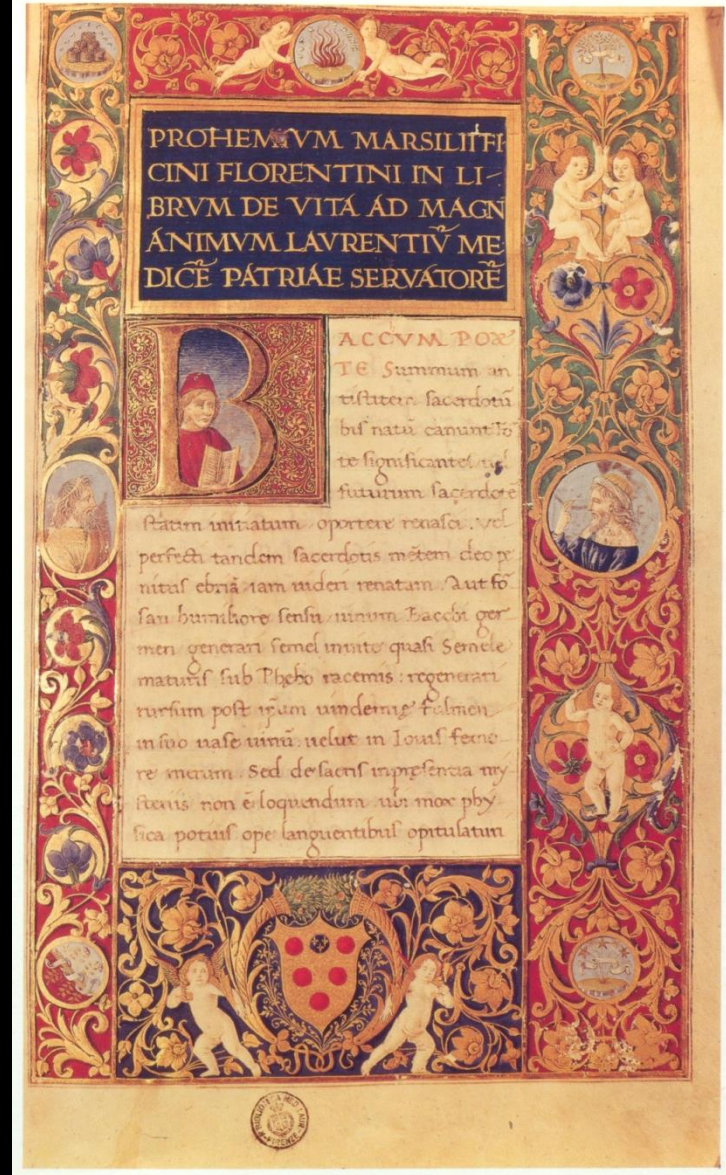 PROHEMIVM MARSILII FI
CINI FLORENTINI IN LI-
BRVM DE VITA AD MAGN
ANIMVM LAVRENTIṼ ME
DICẼ PATRIAE SERVATORẼ
BACCVM POE
TE Summum an
tistitem sacerdotũ
bis natũ canunt fo
te significantes vel
futurum sacerdotẽ
statim initiatum oportere renasci. vel
perfecti tandem sacerdotis mẽtem deo pe
nitus ebriã iam uideri renatam. Aut fo
san humiliore sensu uinum Bacchi ger
men generari semel in uite quasi Semele
maturis sub Phebo racemis: regenerari
rursum post ipsum uindemię fulmen
in suo uase uinũ. uelut in Iouis femo
re merum. Sed de sacris in pręsentia my
steriis non ẽ loquendum. ubi mox phy
sica potius ope languentibus opitulaturi